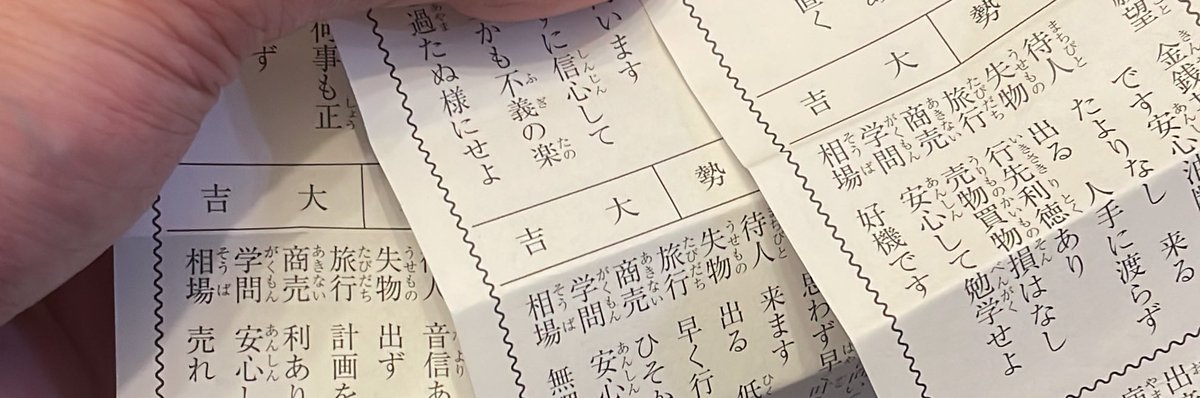 望
大吉
勢
待人 たよりなし 来る
失物 出る 人手に渡らず
旅行 行先利徳あり
商売 売物買物損はなし
学問 安心して勉学せよ
相場 好機です
います
に信心して
かも不義の楽
過たぬ様にせよ
大吉
勢
待人 来ます
思わず早
失物 出る
旅行 早く行
商売 ひそか
学問 安心
相場 無
何事も正
ず
大吉
人 音信あ
失物 出ず
旅行 計画を
商売 利あり
学問 安心し
相場 売れ